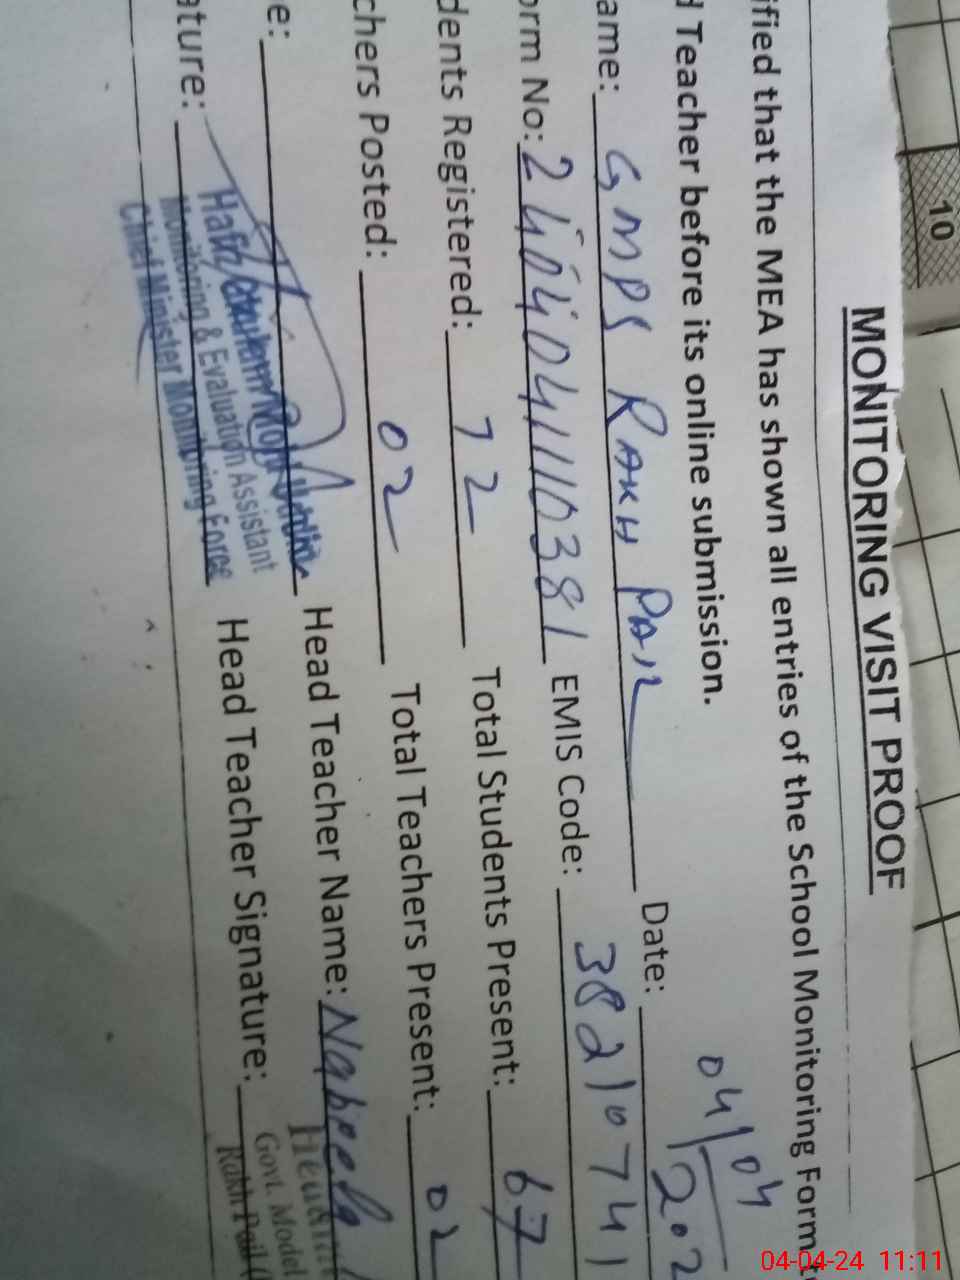 10
MONITORING VISIT PROOF
ified that the MEA has shown all entries of the School Monitoring Form t
d Teacher before its online submission.
ame: GMPS RAKH PAIL Date: 04/04 202
orm No: 24040411110381 EMIS Code: 38210741
dents Registered: 72 Total Students Present: 67
chers Posted: 02 Total Teachers Present: 02
e: Head Teacher Name: Nabeela
ature: Head Teacher Signature:
Monitoring & Evaluation Assistant
Chief Minister Monitoring Force
Govt. Model
Rakh Pail
04-04-24 11:11